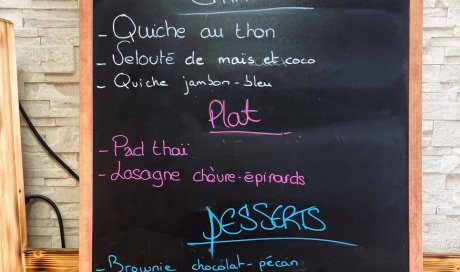 - Quiche au thon
- Velouté de maïs et coco
- Quiche jambon-bleu
Plat
- Pad thaï
- Lasagne chèvre-épinards
DESSERTS
- Brownie chocolat-pécan